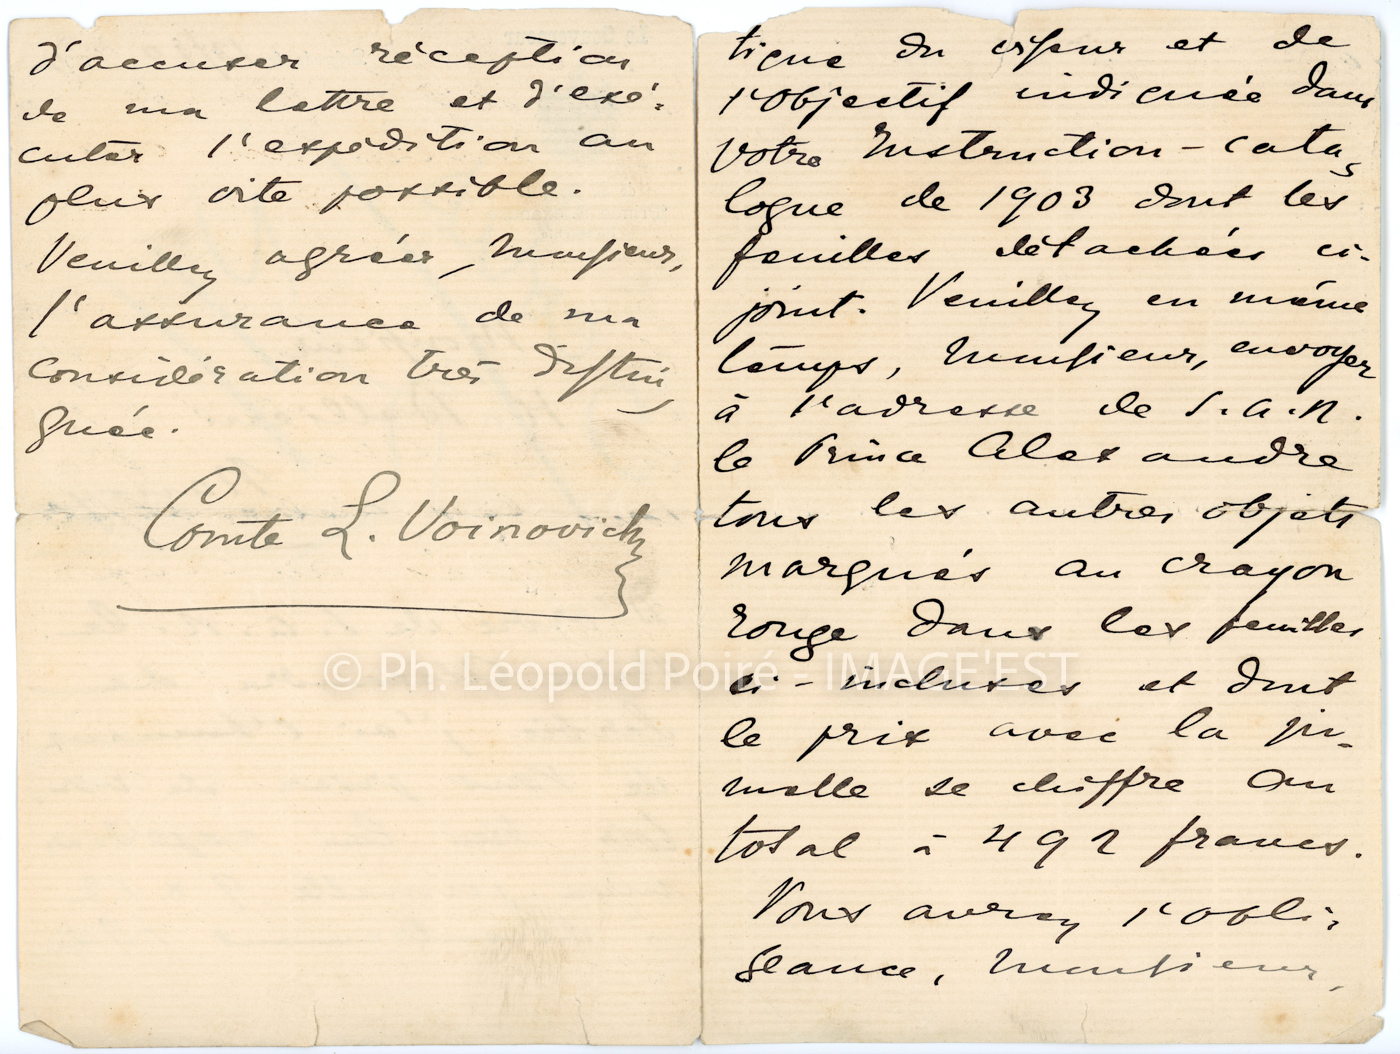 d'accuser réception
de ma lettre et d'exé-
cuter l'expédition au
plus vite possible.
Veuillez agréer, Monsieur,
l'assurance de ma
considération très distin
guée.
Comte L. Voinovich
tique du viseur et de
l'objectif indiquée dans
votre Instruction-cata-
logue de 1903 dont les
feuilles détachées ci-
joint. Veuillez en même
temps, Monsieur, envoyer
à l'adresse de S.A.R.
le Prince Alexandre
tous les autres objets
marqués au crayon
rouge dans les feuilles
ci-incluses et dont
le prix avec la ju-
melle se chiffre au
total à 492 francs.
Vous aurez l'obli-
geance, Monsieur,
© Ph. Léopold Poiré - IMAGE'EST